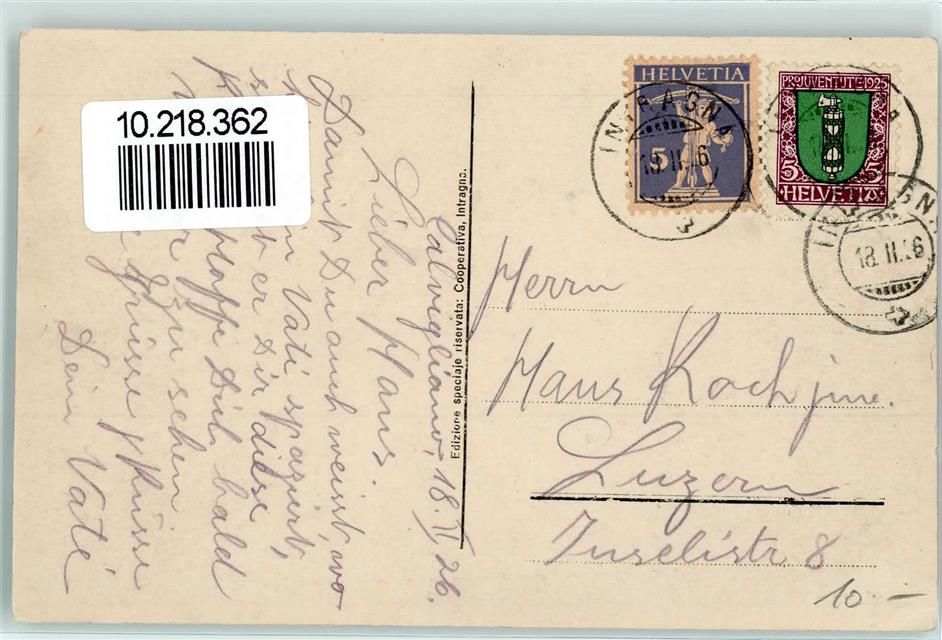 10.218.362
Calvigliano, 18. II 26.
Lieber Hans.
Damit Du auch weisst, wo
Vati spaziert,
er Dir diese
hoffe Dich bald
zu sehen
Grüsse Küsse
Dein Vati
Edizione speciaje riservata: Cooperativa, Intragna.
HELVETIA
5
PRO JUVENTUTE 1925
5 5
HELVETIA
INTRAGNA
18.II.26
INTRAGNA
18.II.26
Herrn
Hans Koch jun.
Luzern
Inselistr 8
10 -